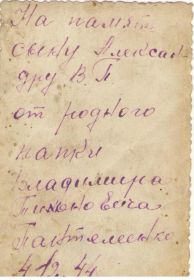 На памят
сыну Алексан
дру В.П.
от родного
папки
Владимира
Тихоновича
Пантелеенко
4/2 44